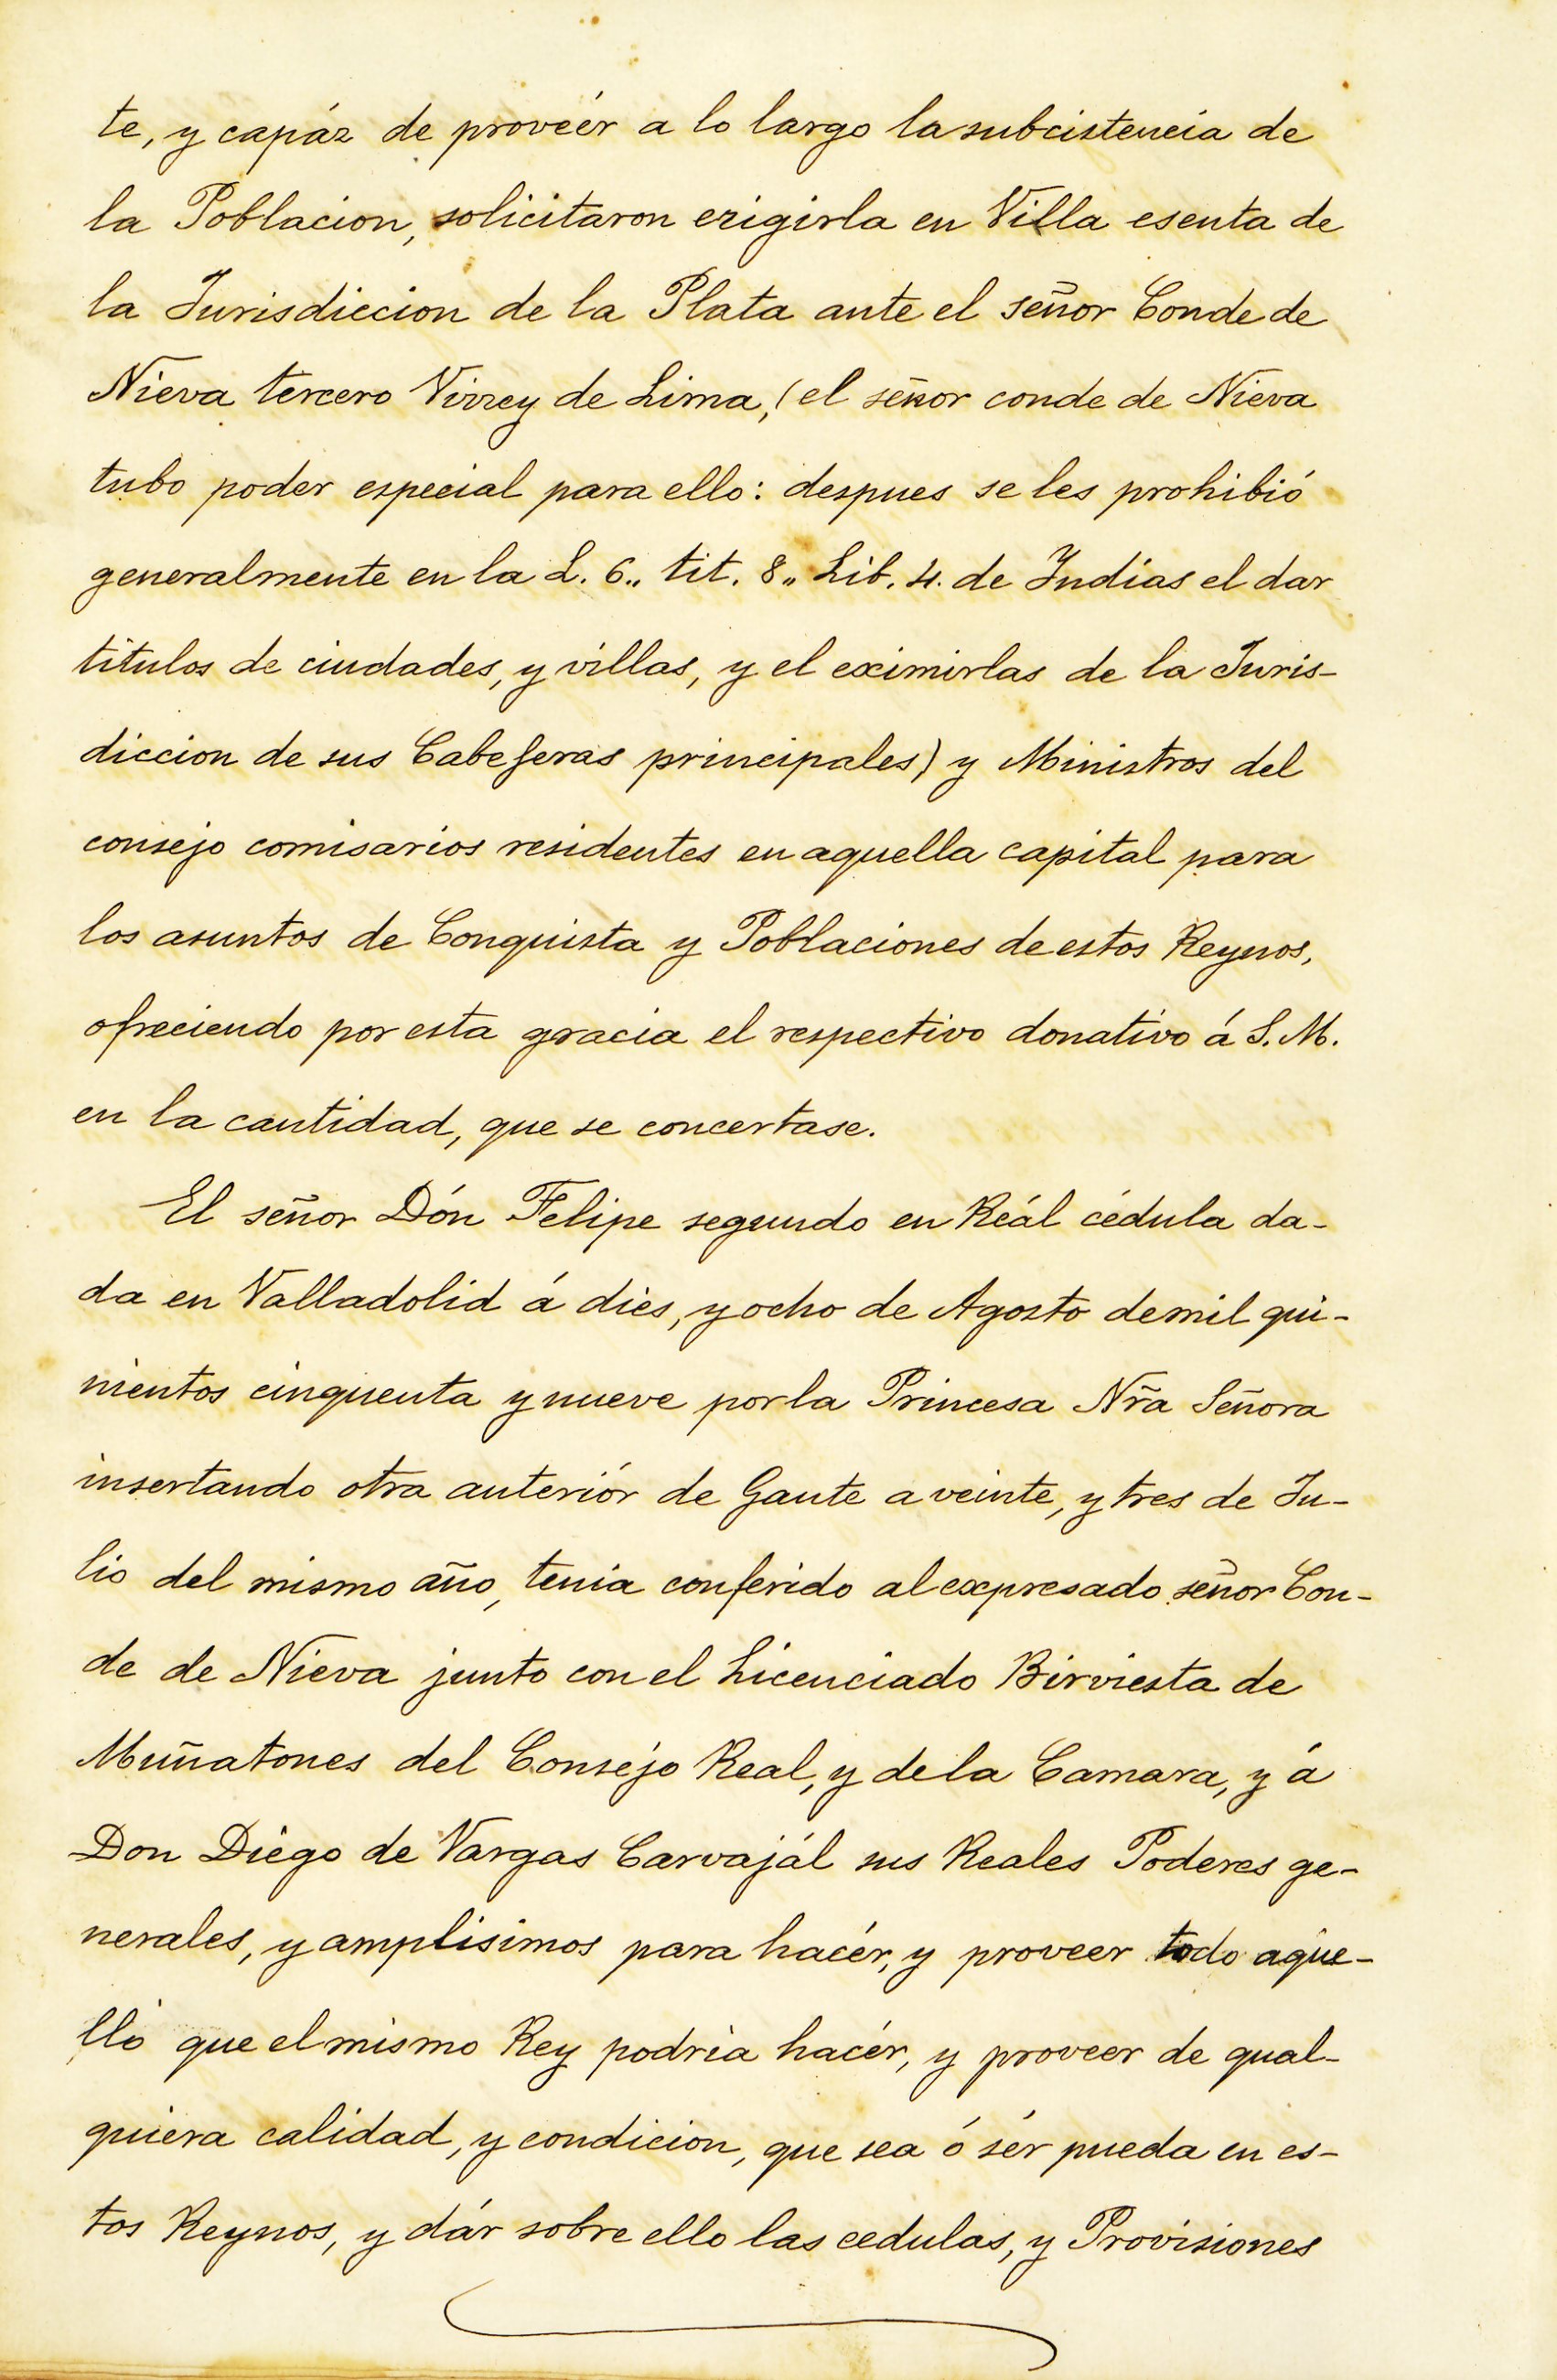 te, y capáz de proveér a lo largo la subcistencia de
la Poblacion, solicitaron erigirla en Villa esenta de
la Jurisdiccion de la Plata ante el señor Conde de
Nieva tercero Virrey de Lima, (el señor conde de Nieva
tubo poder especial para ello: despues se les prohibió
generalmente en la L. 6.. tit. 8.. Lib. 4. de Indias el dar
titulos de ciudades, y villas, y el eximirlas de la Juris-
diccion de sus Cabeseras principales) y Ministros del
consejo comisarios residentes en aquella capital para
los asuntos de Conquista y Poblaciones de estos Reynos,
ofreciendo por esta gracia el respectivo donativo á S. M.
en la cantidad, que se concertase.
El señor Dón Felipe segundo en Reál cédula da-
da en Valladolid á dies, y ocho de Agosto de mil qui-
nientos cinquenta y nueve por la Princesa Nr̃a Señora
insertando otra anteriór de Gante a veinte, y tres de Ju-
lio del mismo año, tenia conferido al expresado señor Con-
de de Nieva junto con el Licenciado Birviesta de
Muñatones del Consejo Real, y de la Camara, y á
Don Diego de Vargas Carvajál sus Reales Poderes ge-
nerales, y amplisimos para hacér, y proveer todo aque-
llo que el mismo Rey podria hacér, y proveer de qual-
quiera calidad, y condicion, que sea ó sér pueda en es-
tos Reynos, y dár sobre ello las cedulas, y Provisiones